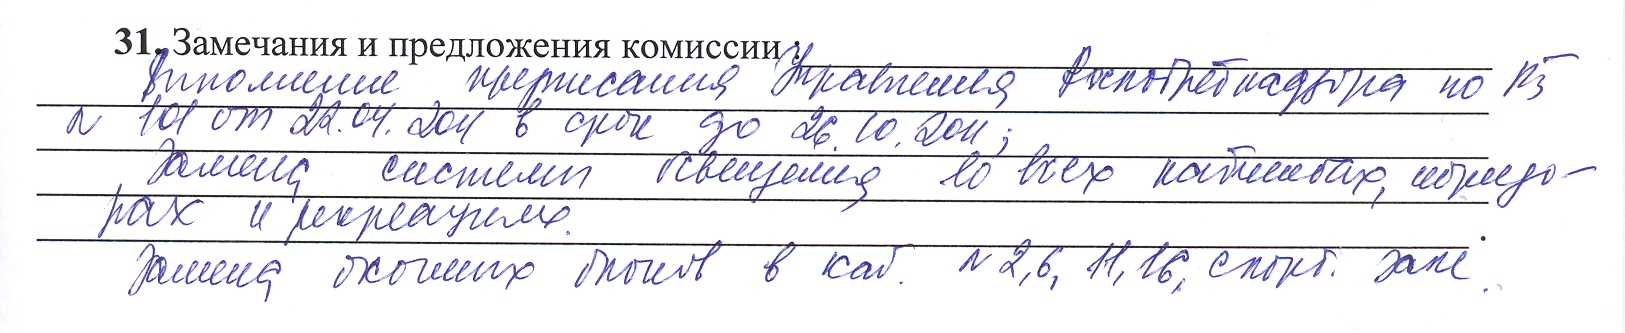 31. Замечания и предложения комиссии :
Выполнение предписания Управления Роспотребнадзора по РБ
N 101 от 22.04.2011 в срок до 26.10.2011;
Замена системы освещения во всех кабинетах, коридо-
рах и рекреациях.
Замена оконных блоков в каб. N 2,6, 11, 16, спорт. зале.